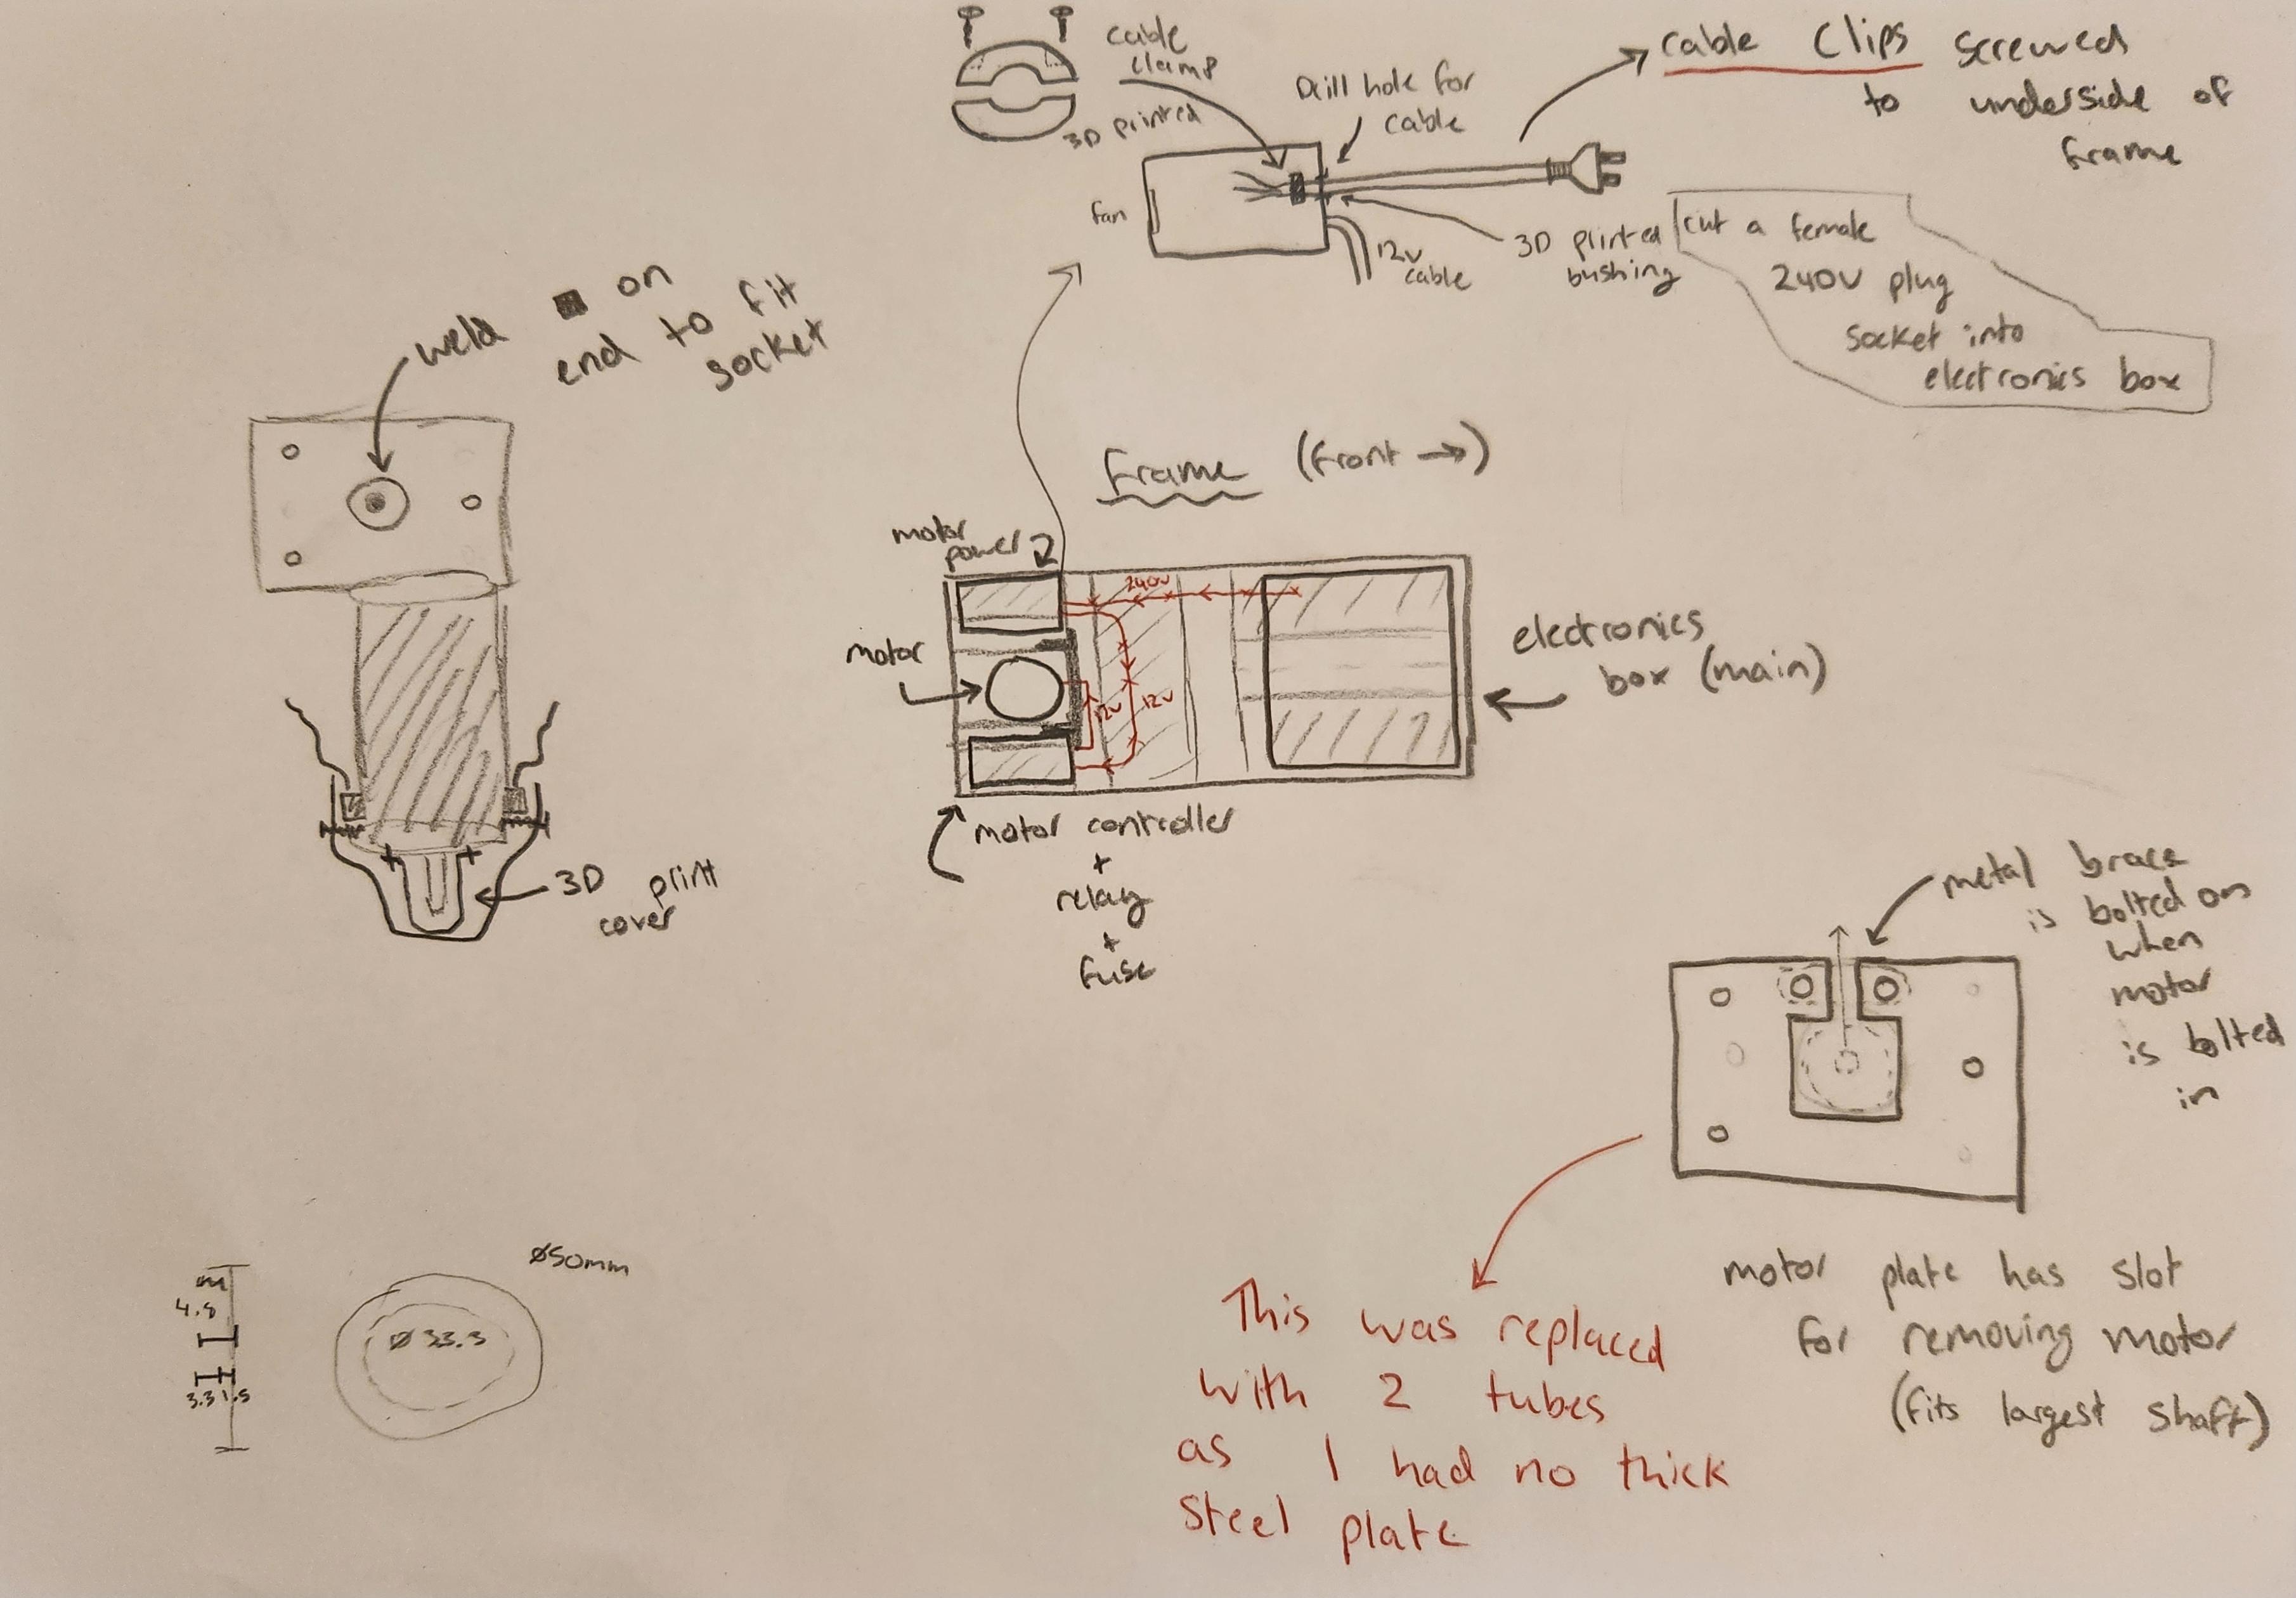 cable
clamp
3D printed
Drill hole for
cable
cable clips screwed
to underside of
frame
fan
12v
cable
3D printed
bushing
cut a female
240V plug
socket into
electronics box
weld on
end to fit
socket
Frame (front →)
motor
power
240v
motor
12v
12v
electronics
box (main)
motor controller
+
relay
+
fuse
3D print
cover
metal brace
is bolted on
when
motor
is bolted
in
motor plate has slot
for removing motor
(fits largest shaft)
This was replaced
with 2 tubes
as I had no thick
steel plate
Ø50mm
Ø 33.3
4.5
3.3 1.5